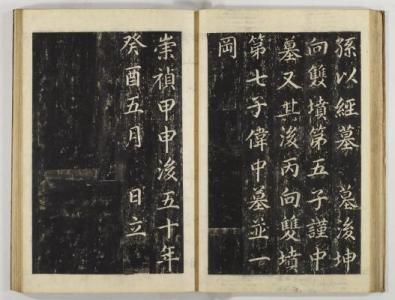 孫以經墓 墓後坤
向雙墳第五子謹中
墓又其後丙向雙墳
第七子偉中墓並一
岡
崇禎甲申後五十年
癸酉五月 日立